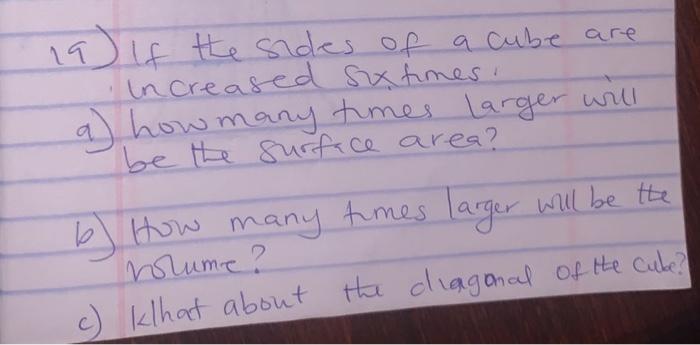 19) If the sides of a cube are
increased six times.
a) how many times larger will
be the surface area?
b) How many times larger will be the
volume?
c) What about the diagonal of the cube?